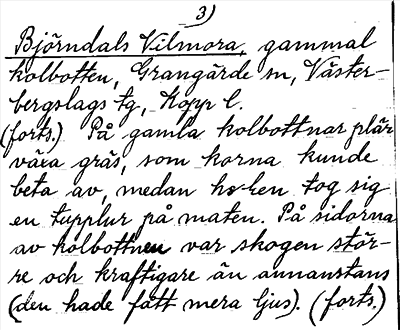 3)
Björndals Vilmora, gammal
kolbotten, Grangärde sn, Väster-
bergslags tg, Kopp l.
(forts.) På gamla kolbottnar plär
växa gräs, som korna kunde
beta av, medan herren tog sig
en tupplur på maten. På sidorna
av kolbottnen var skogen stör-
re och kraftigare än annanstans
(den hade fått mera ljus). (forts.)